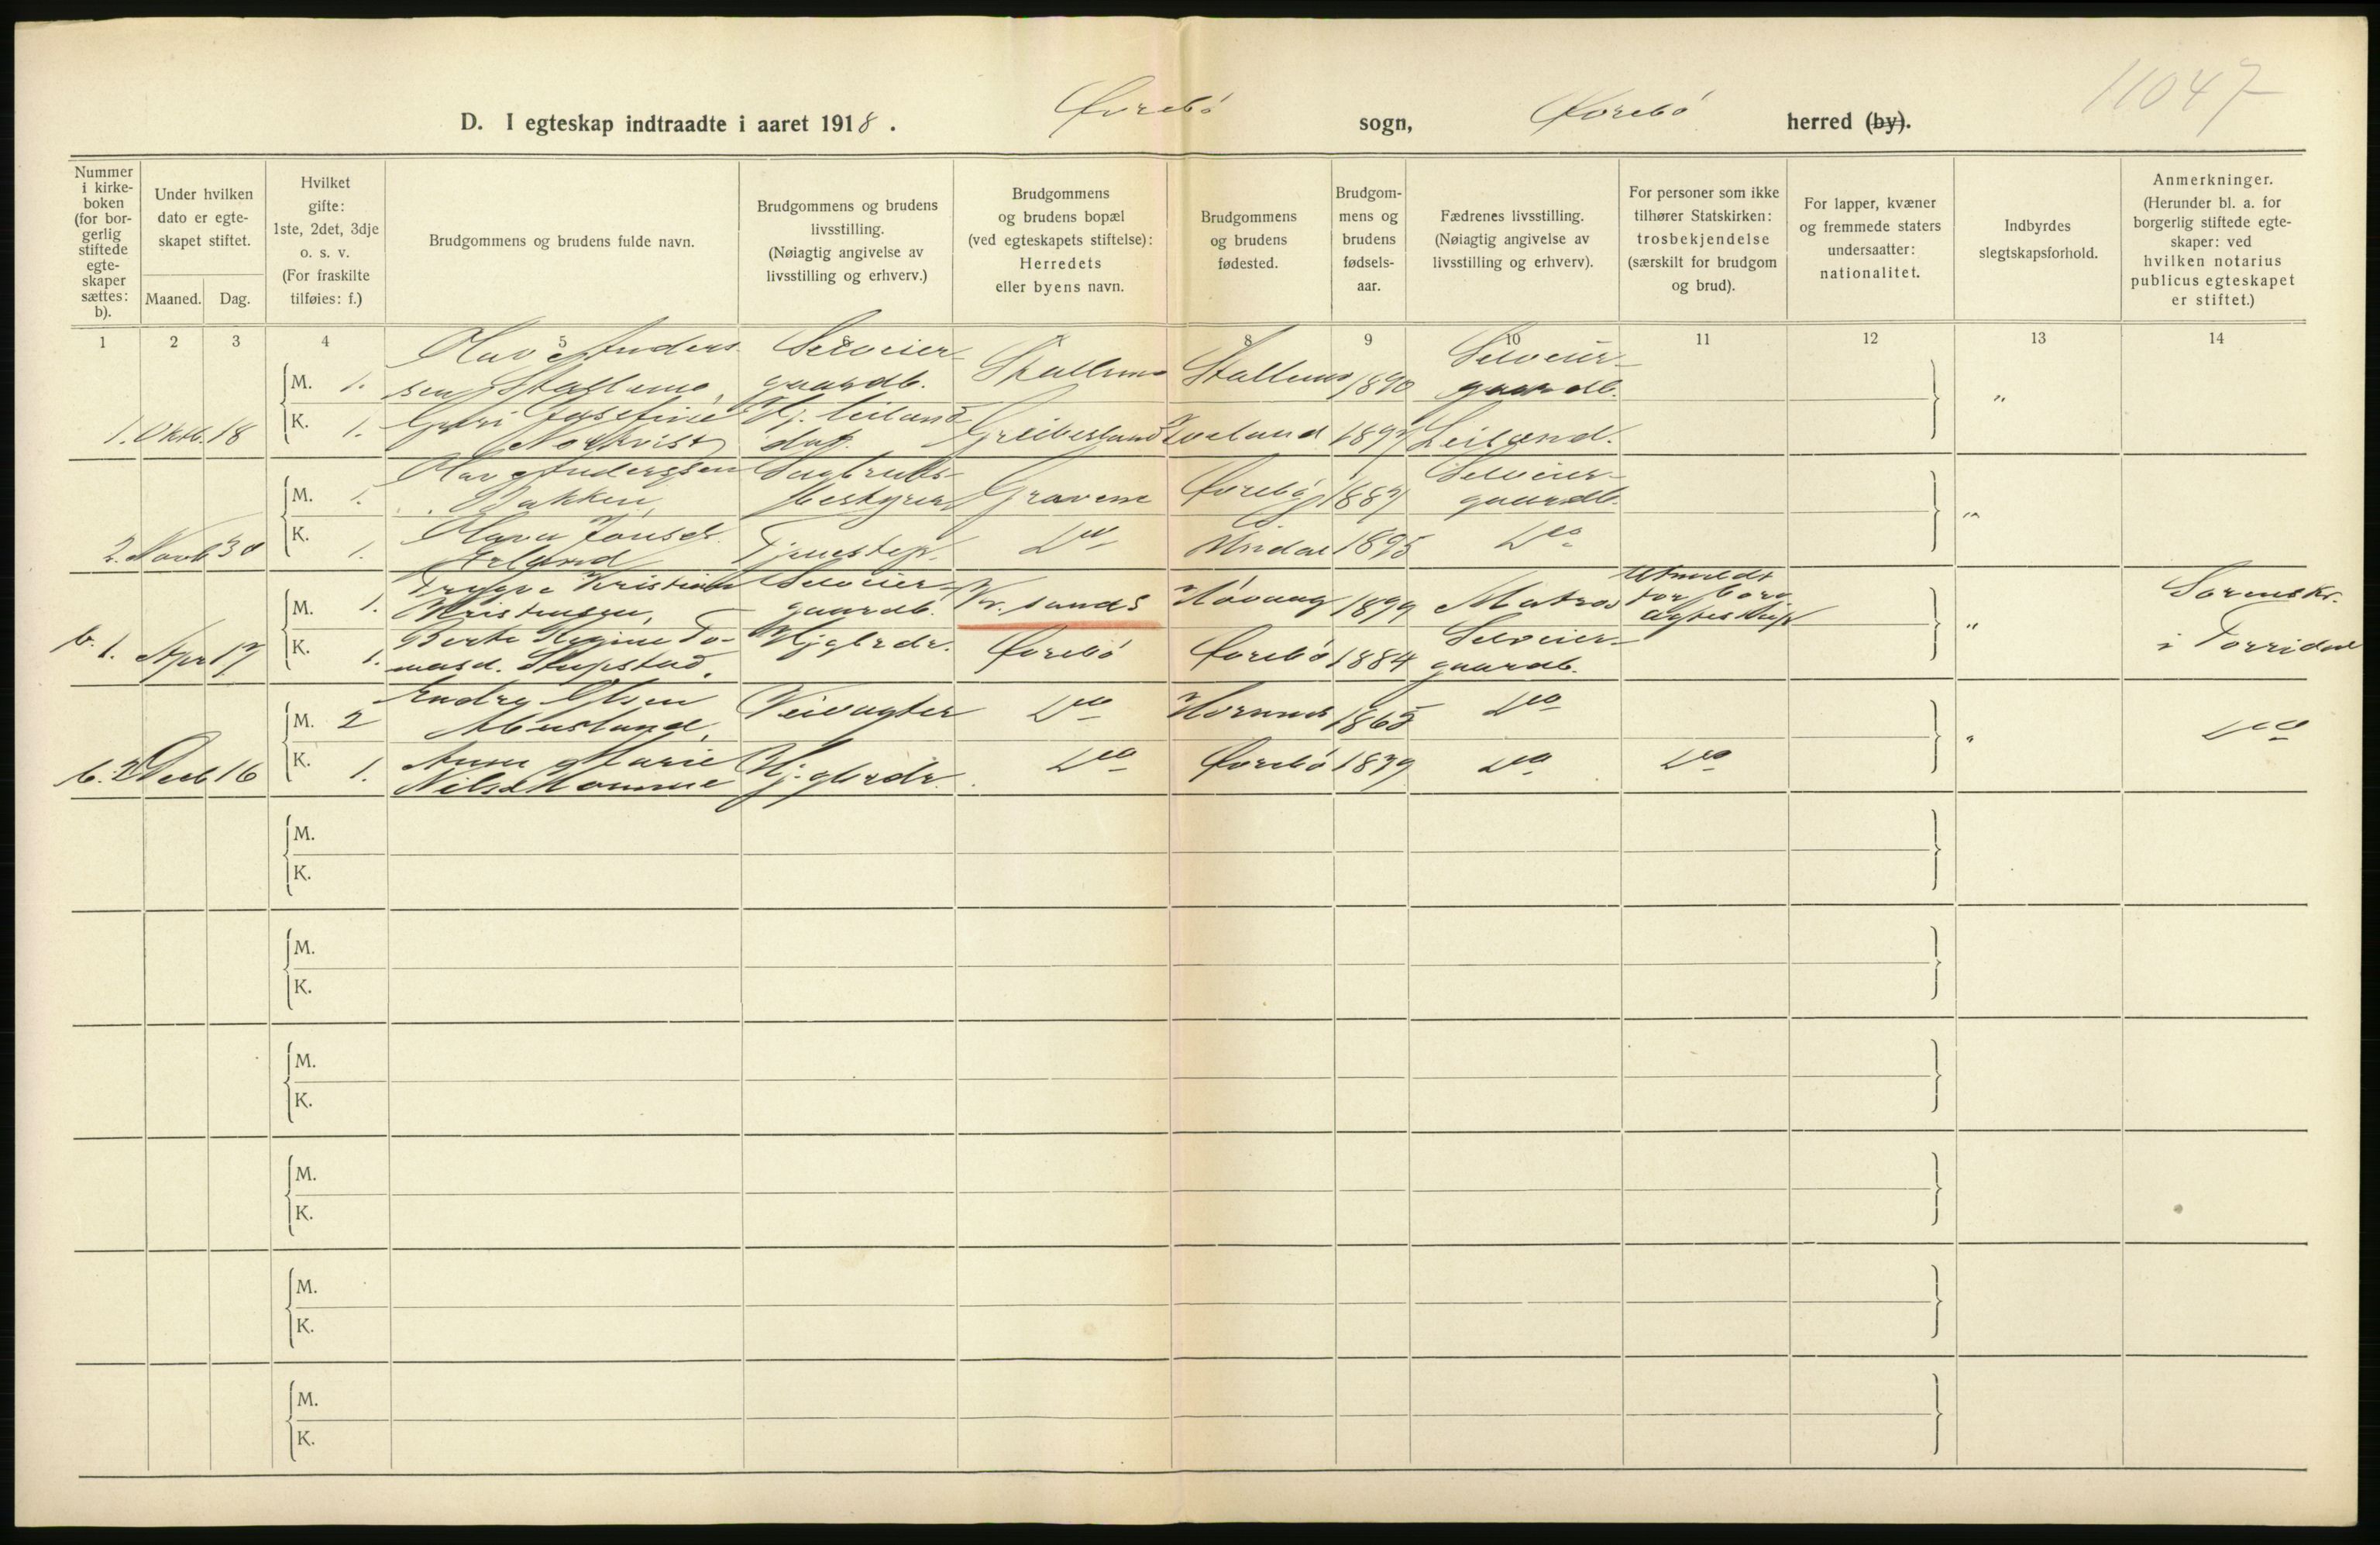 11047
D. I egteskap indtraadte i aaret 1918. Øvrebö sogn, Øvrebö herred (by).
Nummer i kirkeboken (for borgerlig stiftede egteskaper sættes: b).
Under hvilken dato er egteskapet stiftet.
Maaned. Dag.
Hvilket gifte: 1ste, 2det, 3dje o. s. v. (For fraskilte tilføies: f.)
Brudgommens og brudens fulde navn.
Brudgommens og brudens livsstilling. (Nøiagtig angivelse av livsstilling og erhverv.)
Brudgommens og brudens bopæl (ved egteskapets stiftelse): Herredets eller byens navn.
Brudgommens og brudens fødested.
Brudgommens og brudens fødselsaar.
Fædrenes livsstilling. (Nøiagtig angivelse av livsstilling og erhverv).
For personer som ikke tilhører Statskirken: trosbekjendelse (særskilt for brudgom og brud).
For lapper, kvæner og fremmede staters undersaatter: nationalitet.
Indbyrdes slegtskapsforhold.
Anmerkninger. (Herunder bl. a. for borgerlig stiftede egteskaper: ved hvilken notarius publicus egteskapet er stiftet.)
1 2 3 4 5 6 7 8 9 10 11 12 13 14
1. Oktb. 18
M. 1. Olav Anderssen Stallemo, Selveiergaardb. Stallemo Stallemo 1890 Selveiergaardb. "
K. 1. Josefine Nordkvist Hj. Greibesland 1897
2. Novb 30
M. 1. Olav Anderssen Bakken, Sagbruksbestyrer Gravem Øvrebö 1887 Selveiergaardb. "
K. 1. Jonsd. Tjenestep. Do Vindal 1895 Do
b. 1. Apr 17
M. 1. Trygve Kristian Kristensen, Selveiergaardb. Kr.sands Hövaag 1899 Matros Utmeldt for borg. ægteskap " Sorenskr. i Torridal
K. 1. Berte Regine Tomasd. Stupstad. Hj.g.brdr. Øvrebö Øvrebö 1884 Selveiergaardb.
b. 2 Decb 16
M. 2 Endre Olsen Abusland, Veivogter Do Hornnes 1865 Do " Do
K. 1. Anne Marie Nilsd Homme Hj. gbrdr. Do Øvrebö 1879 Do Do
M.
K.
M.
K.
M.
K.
M.
K.
M.
K.
M.
K.